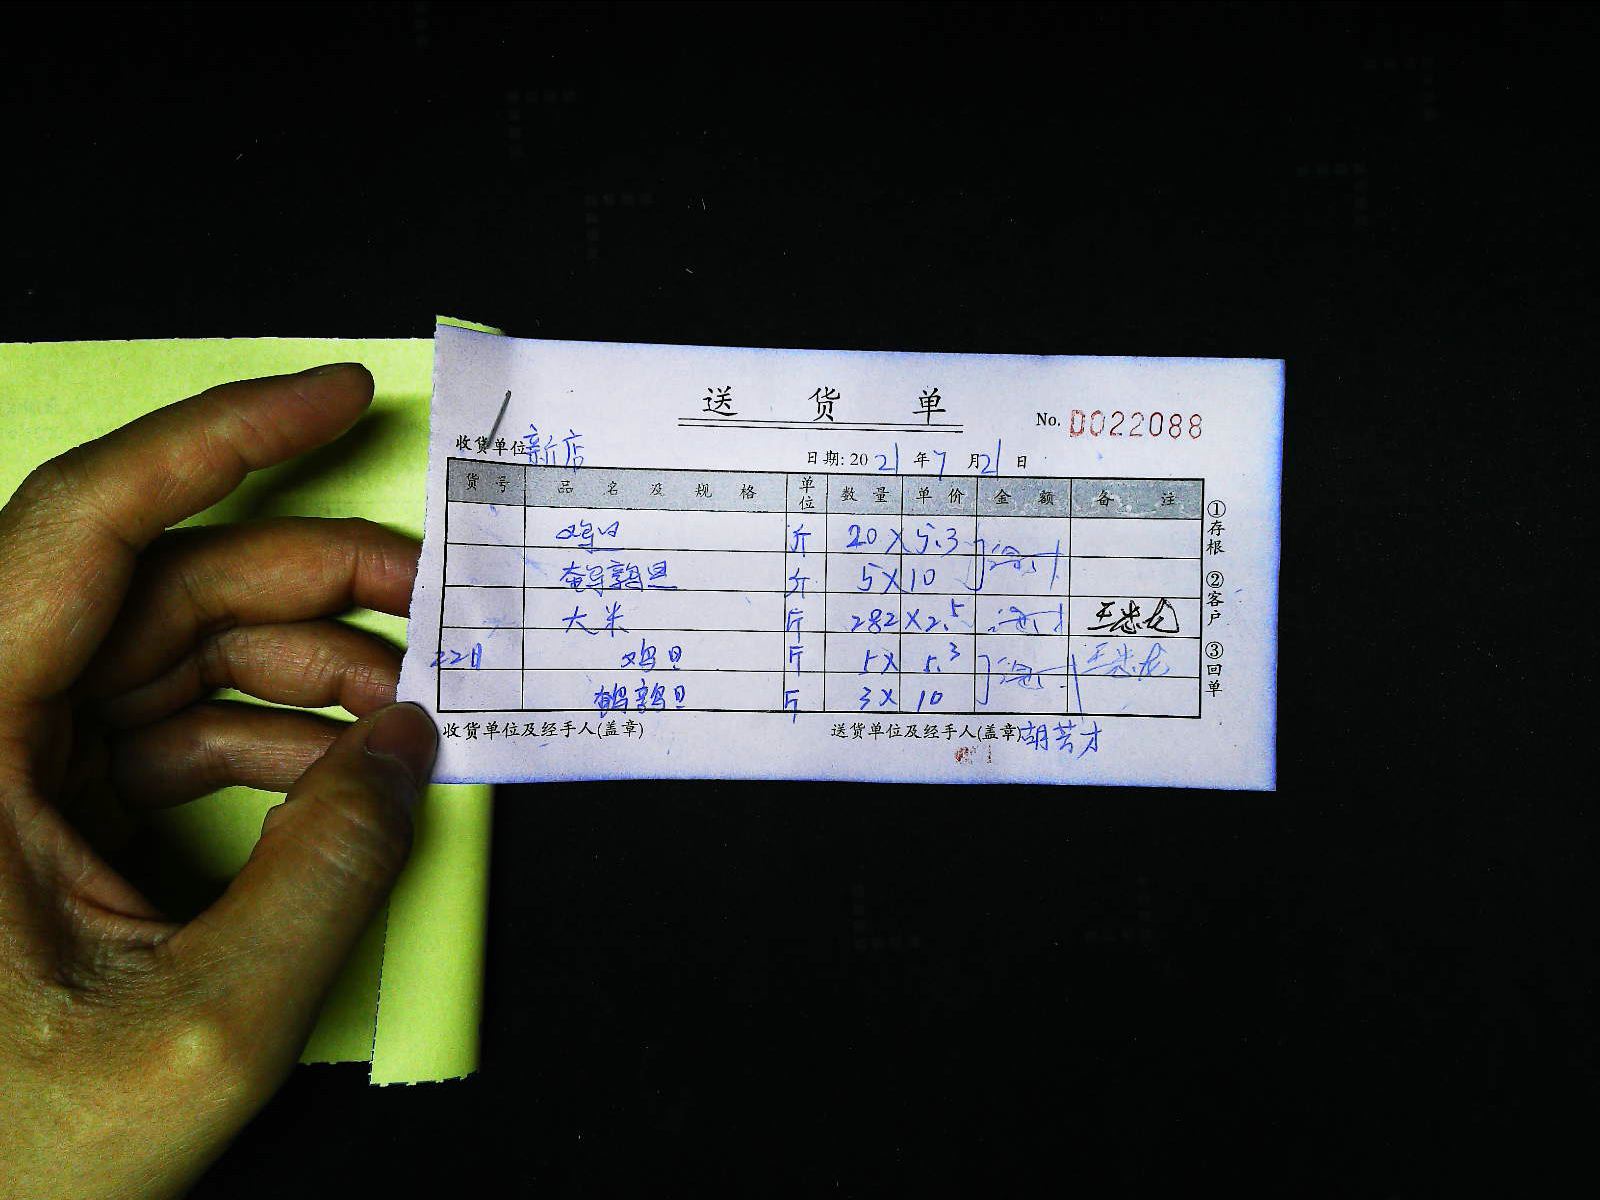 送 货 单
No. D022088
收货单位 新店 日期: 2021 年 7 月 21 日
货 号 品 名 及 规 格 单位 数 量 单 价 金 额 备 注
鸡旦 斤 20 × 5.3
鹌鹑旦 斤 5 × 10
大米 斤 282 × 2.5
22日 鸡旦 斤 5 × 5.3
鹌鹑旦 斤 3 × 10
①存根 ②客户 ③回单
收货单位及经手人(盖章) 送货单位及经手人(盖章) 胡芳才